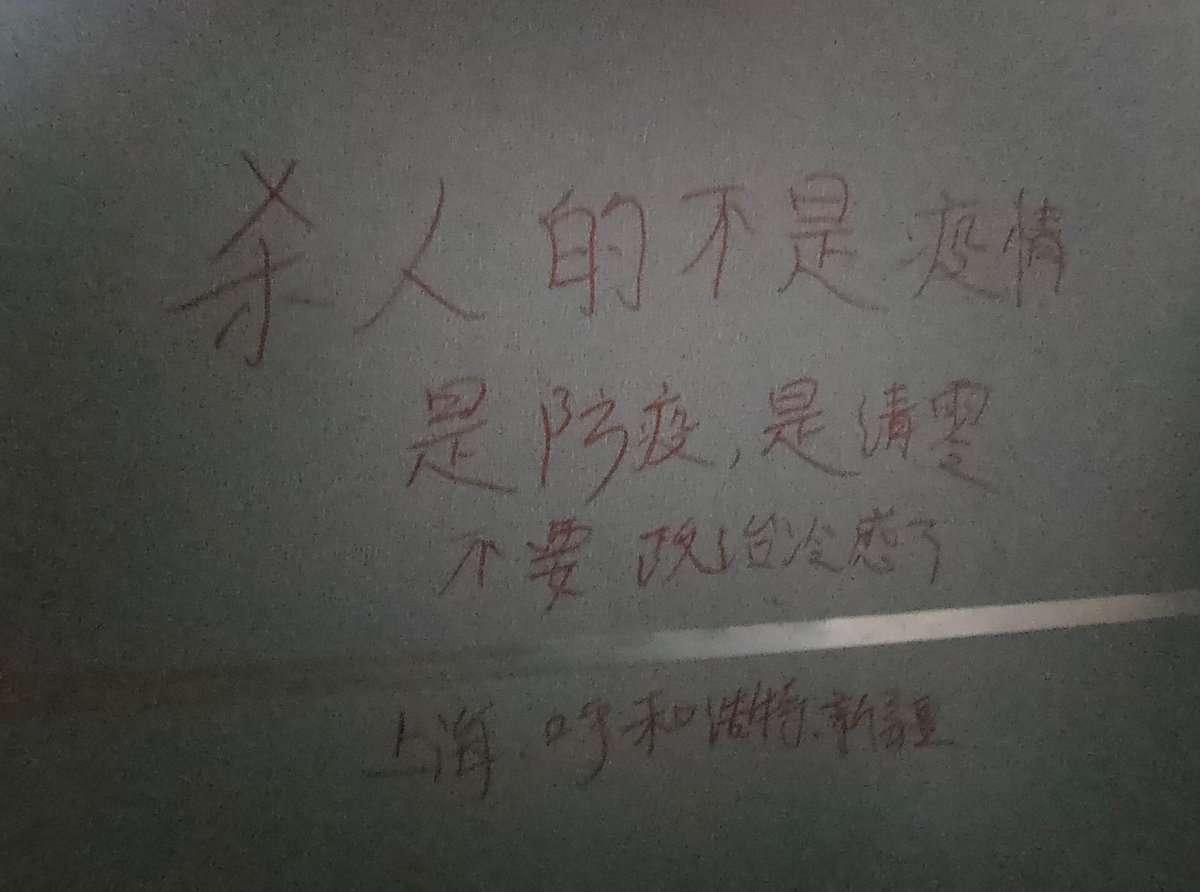 杀人的不是疫情
是防疫,是清零
不要政治冷感了
上海、呼和浩特、新疆